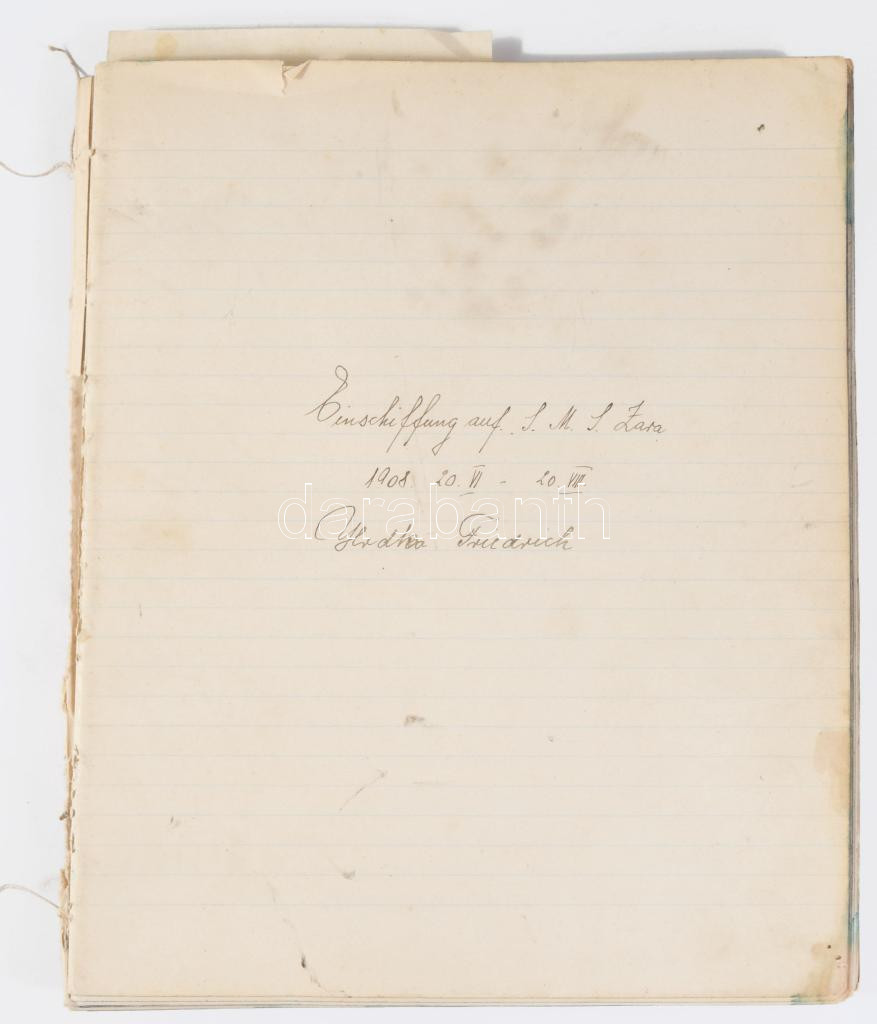 Einschiffung auf S. M. S. Zara
1908. 20. VI - 20. VIII
darabanth
Friedrich